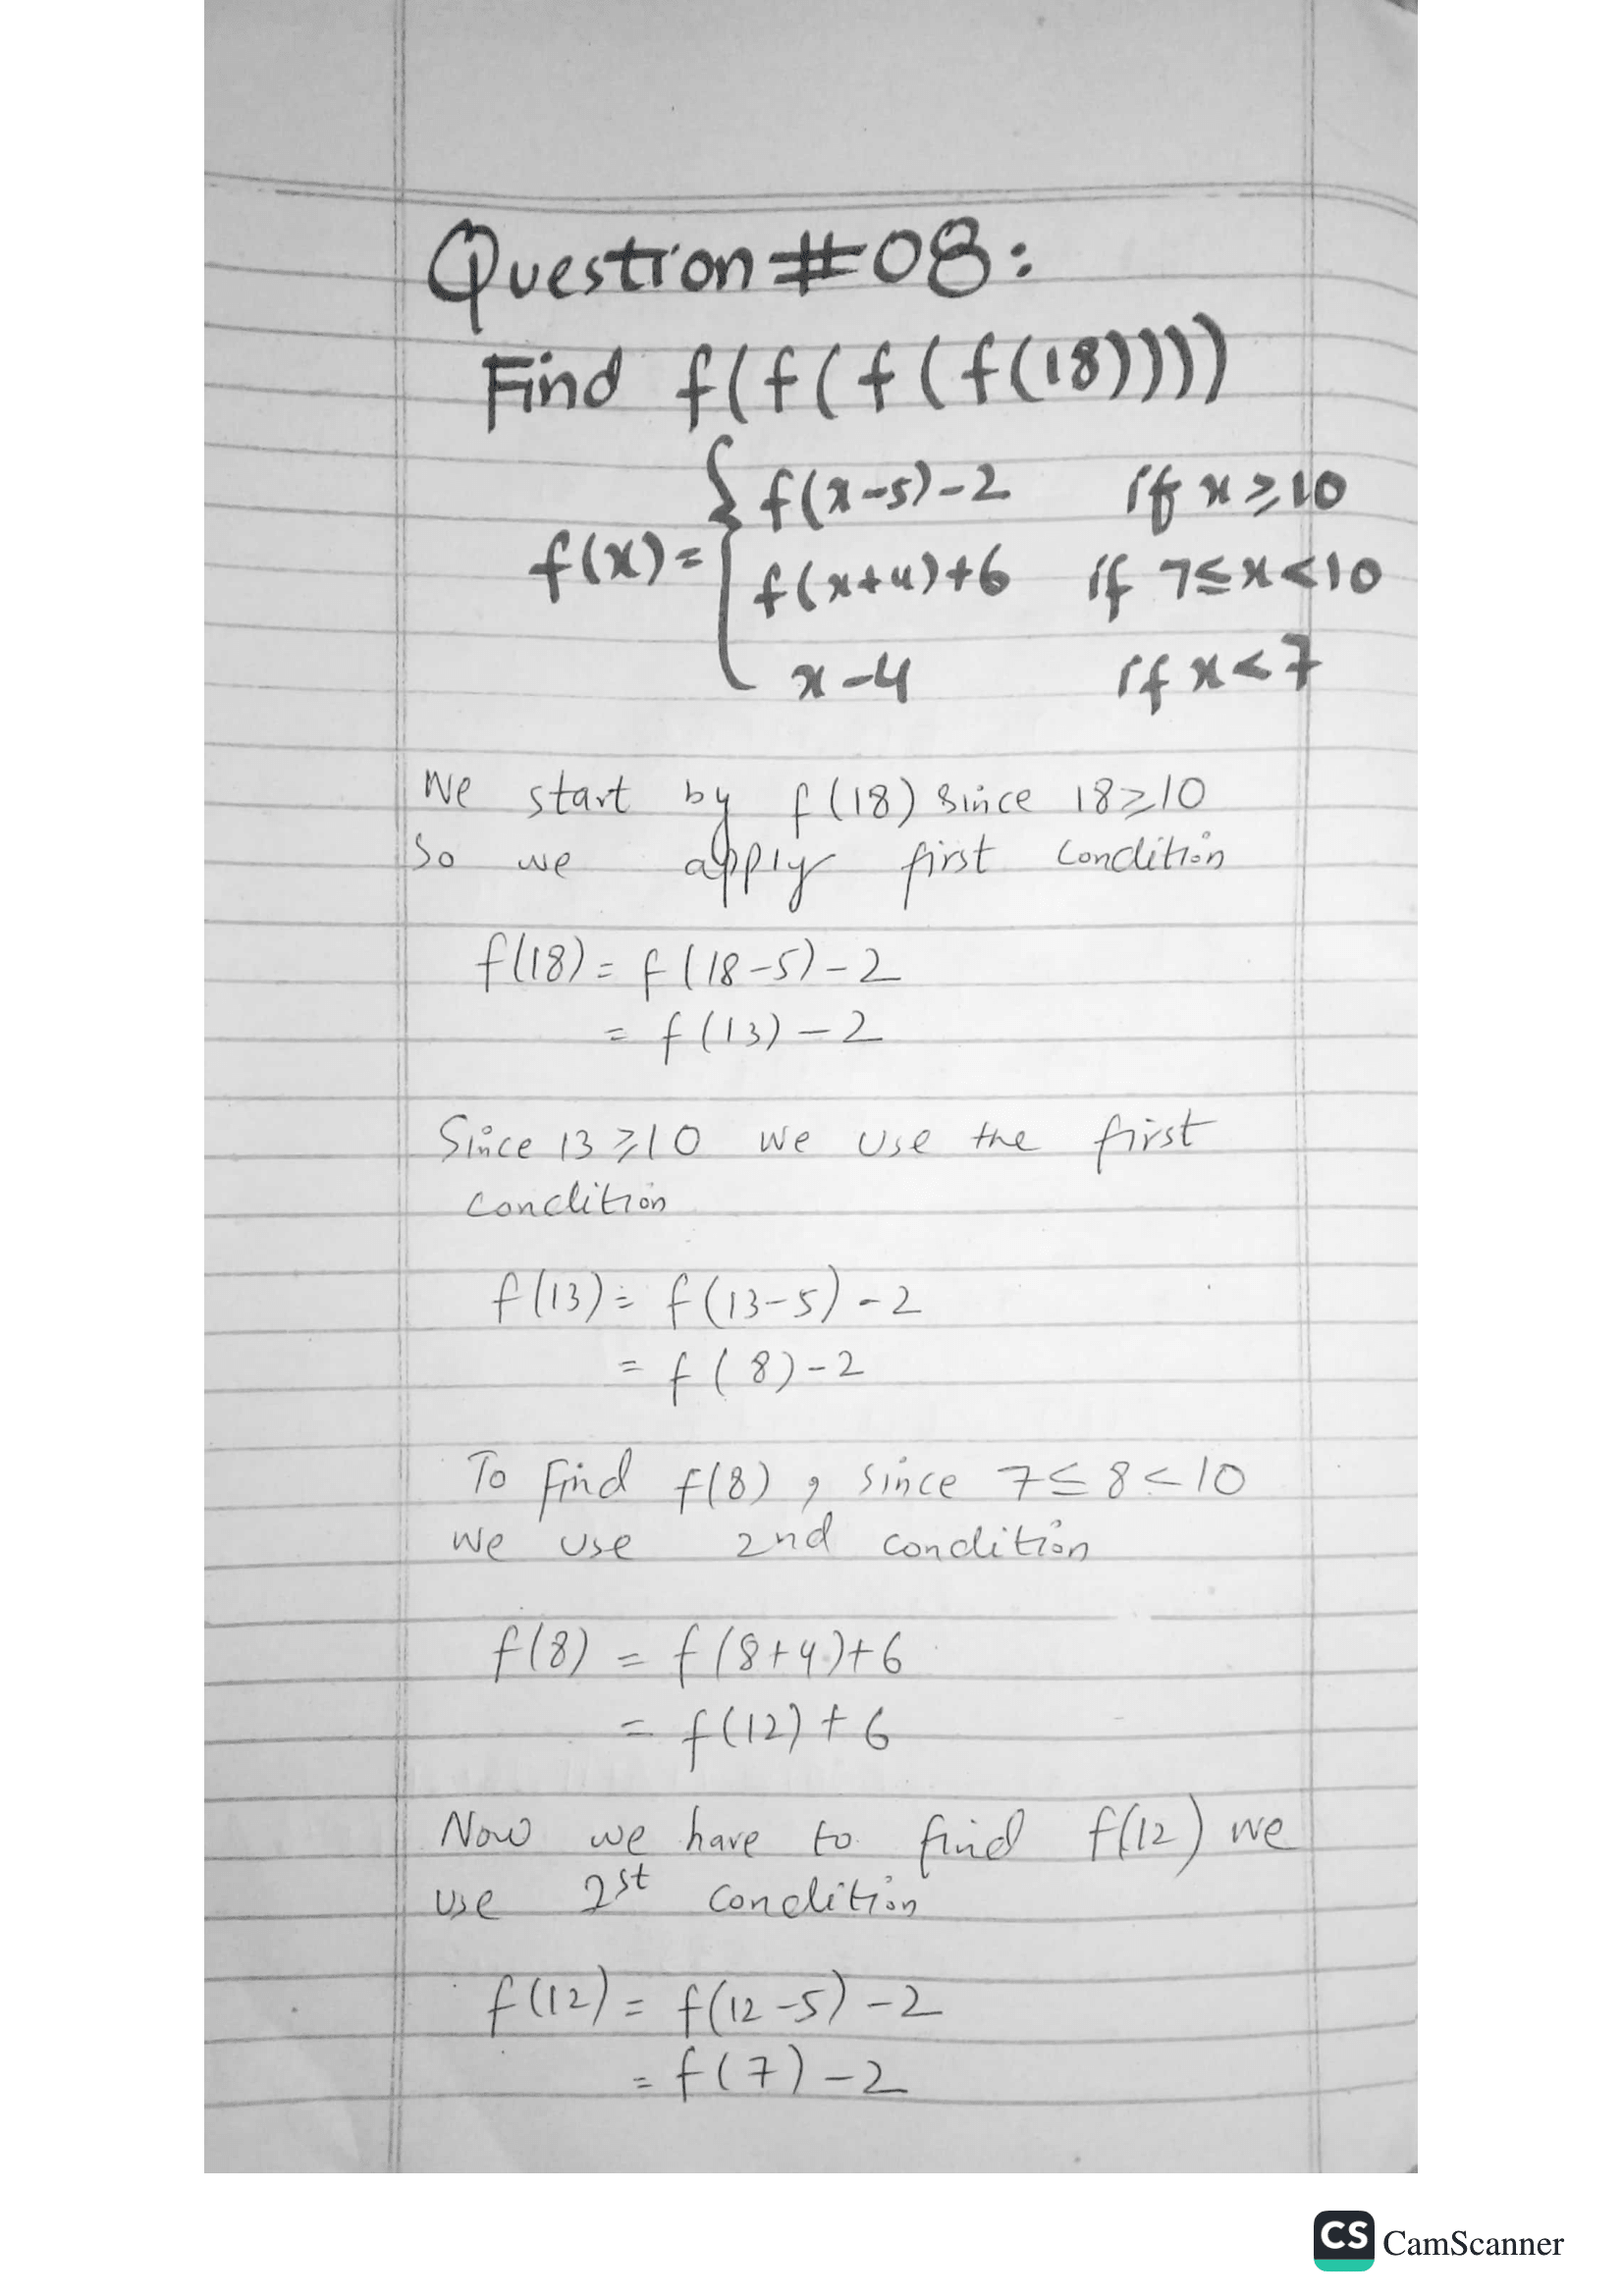 Question #08:
Find f(f(f(f(18))))
f(x) = { f(x-5)-2 if x ≥ 10
f(x+4)+6 if 7 ≤ x < 10
x-4 if x < 7
We start by f(18) since 18 ≥ 10
So we apply first condition
f(18) = f(18-5)-2
= f(13) - 2
Since 13 ≥ 10 we use the first
condition
f(13) = f(13-5) - 2
= f(8) - 2
To find f(8), since 7 ≤ 8 < 10
we use 2nd condition
f(8) = f(8+4)+6
= f(12) + 6
Now we have to find f(12) we
use 1st condition
f(12) = f(12-5) - 2
= f(7) - 2
CS CamScanner